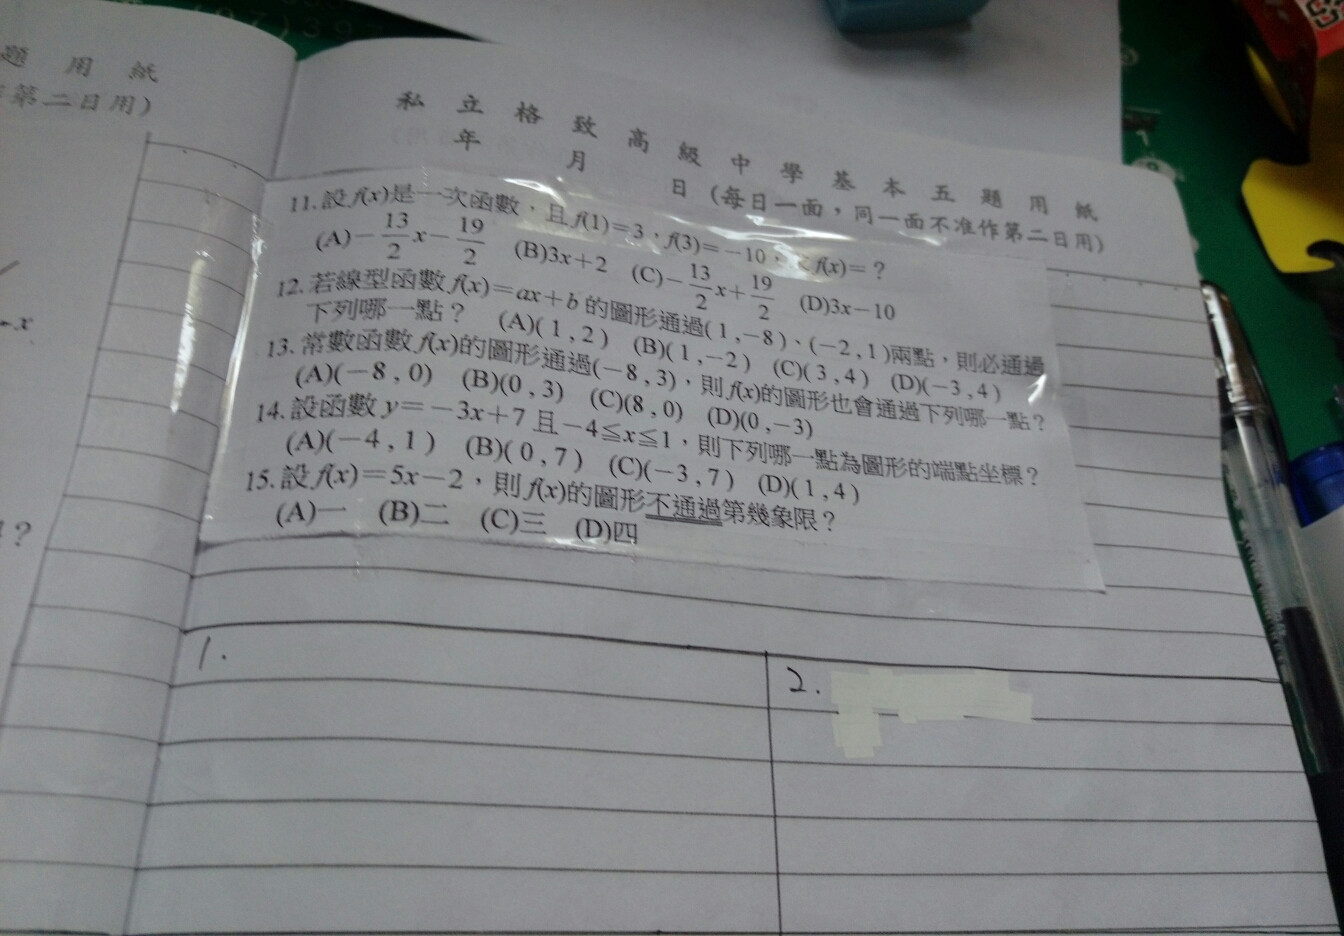 題 用 紙
第二日用)
私 立 格 致 高 級 中 學 基 本 五 題 用 紙
年 月 日 (每日一面，同一面不准作第二日用)
11.設f(x)是一次函數，且f(1)=3，f(3)=-10，f(x)=？
(A)-13/2 x-19/2 (B)3x+2 (C)-13/2 x+19/2 (D)3x-10
12.若線型函數f(x)=ax+b的圖形通過(1,-8)、(-2,1)兩點，則必通過
下列哪一點？ (A)(1,2) (B)(1,-2) (C)(3,4) (D)(-3,4)
13.常數函數f(x)的圖形通過(-8,3)，則f(x)的圖形也會通過下列哪一點？
(A)(-8,0) (B)(0,3) (C)(8,0) (D)(0,-3)
14.設函數y=-3x+7且-4≦x≦1，則下列哪一點為圖形的端點坐標？
(A)(-4,1) (B)(0,7) (C)(-3,7) (D)(1,4)
15.設f(x)=5x-2，則f(x)的圖形不通過第幾象限？
(A)一 (B)二 (C)三 (D)四
x
？
1.
2.